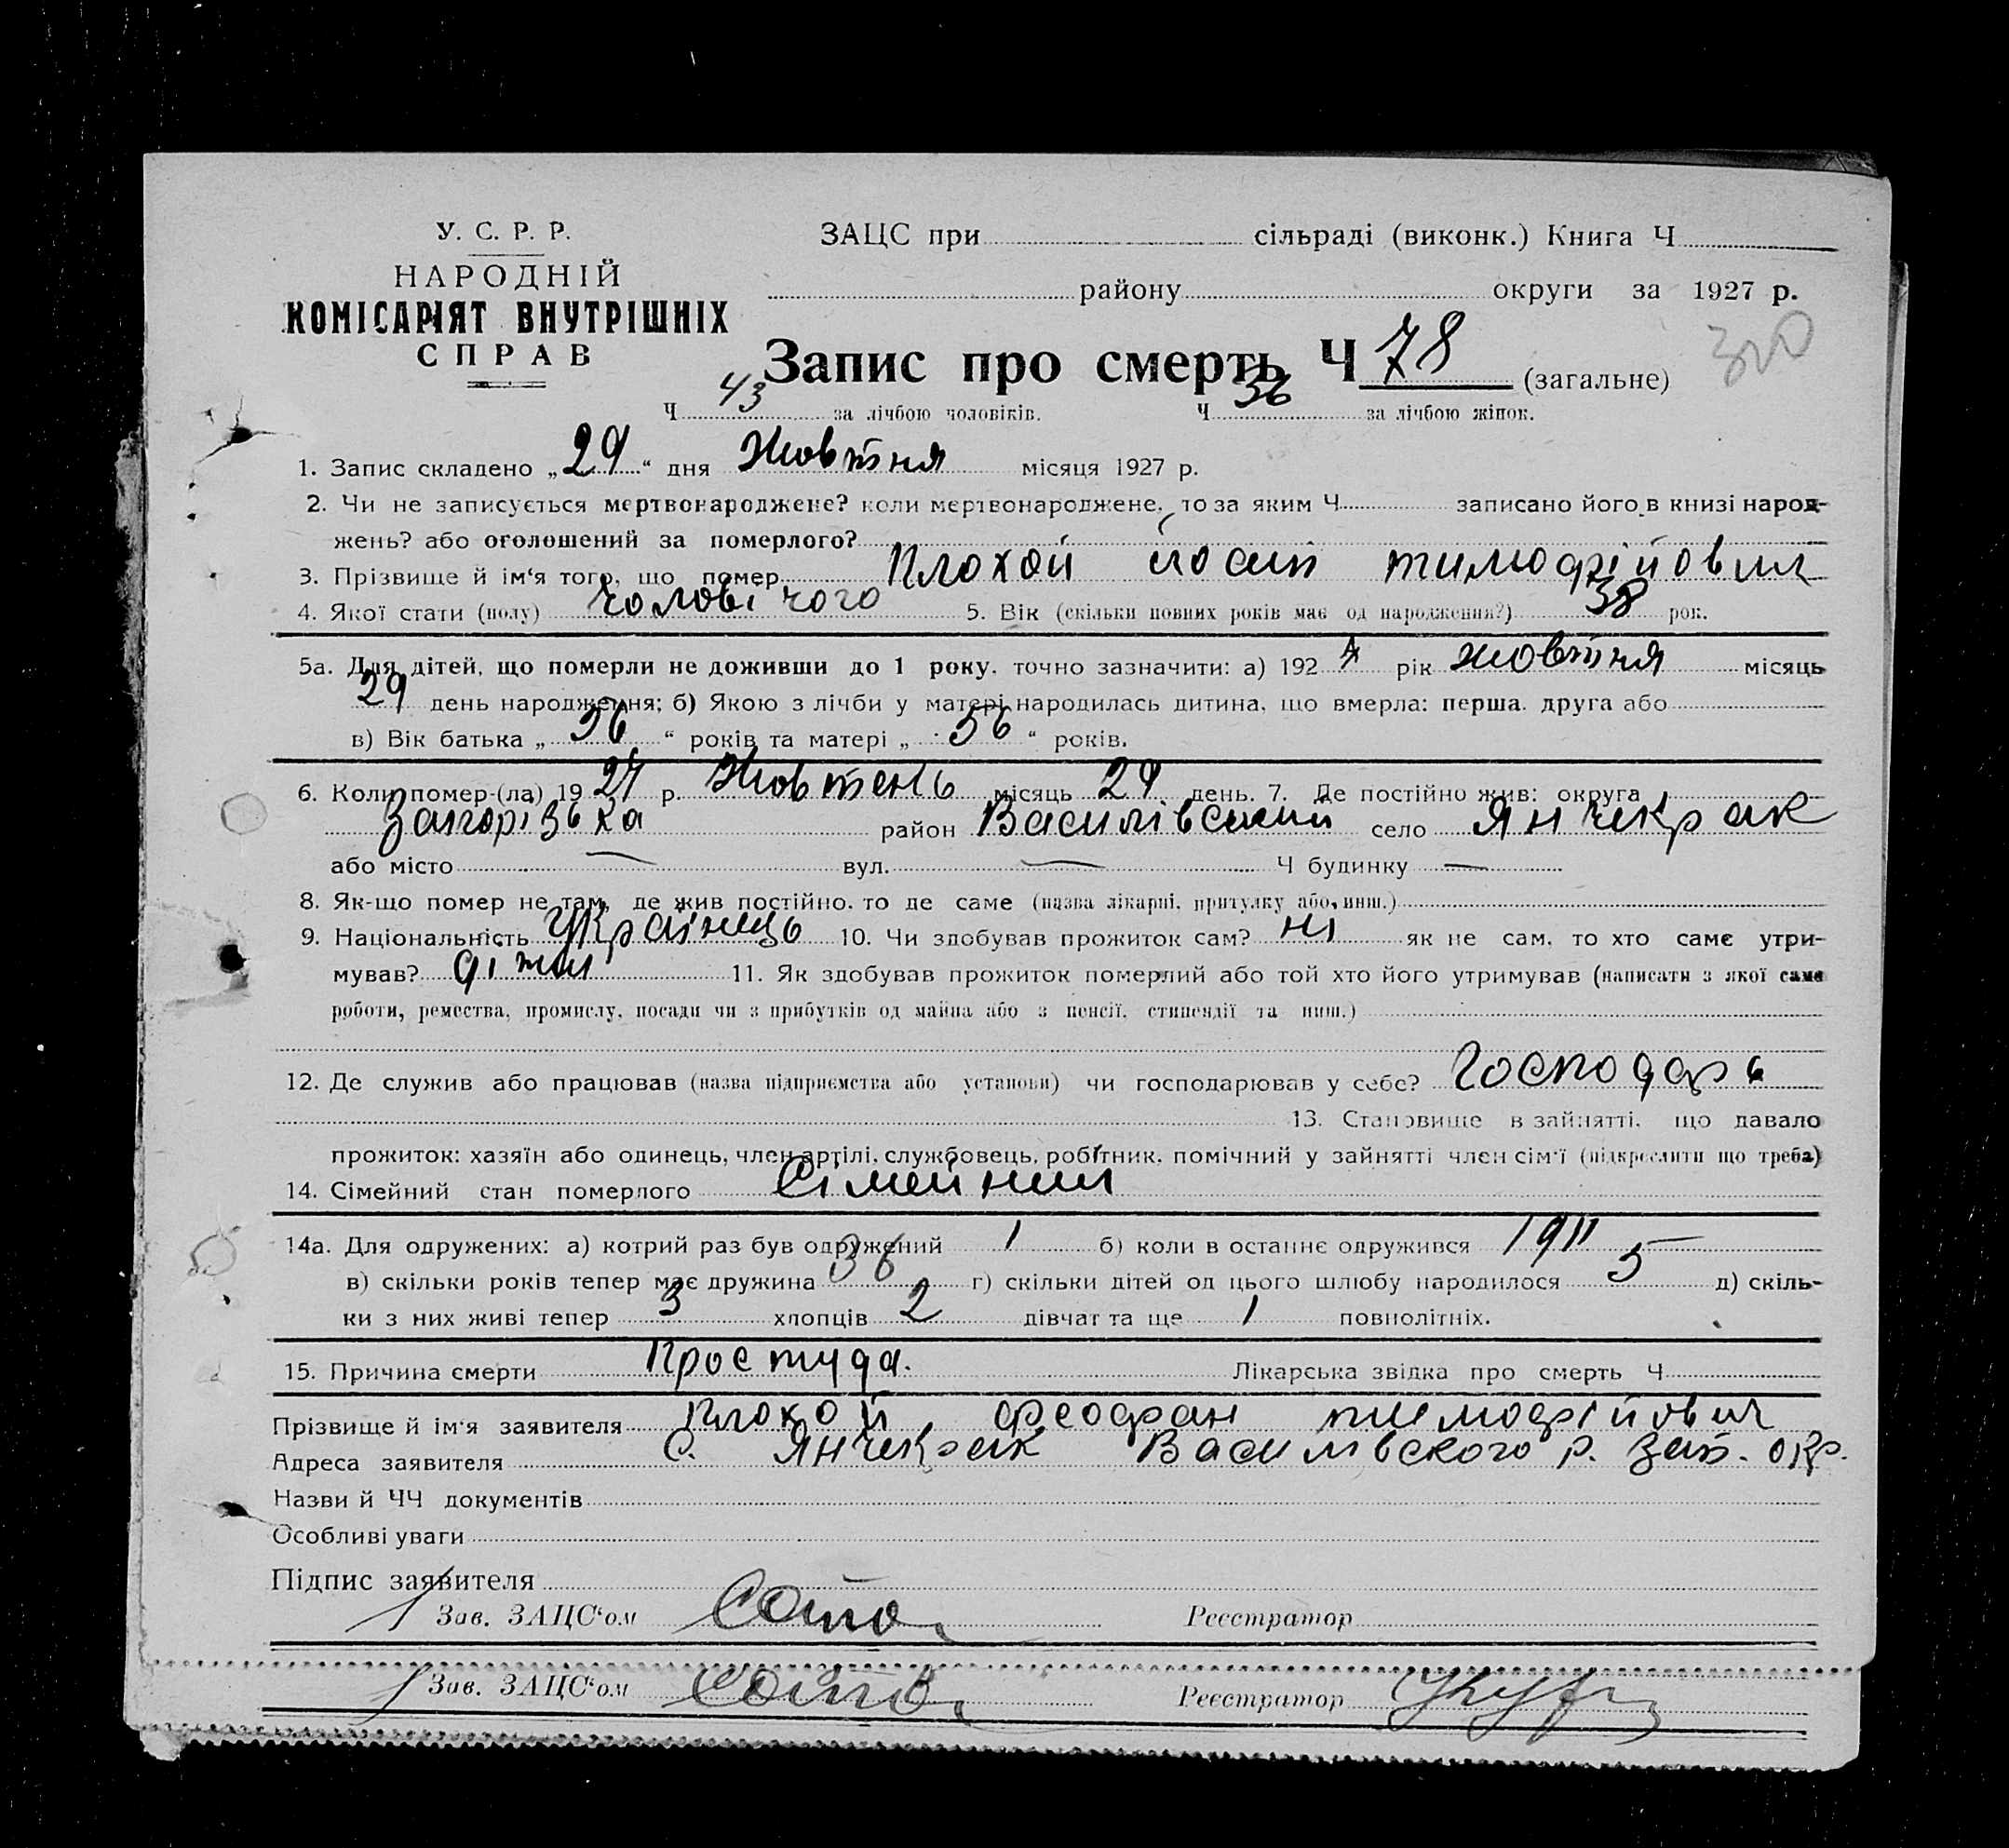 У. С. Р. Р.
НАРОДНІЙ
КОМІСАРІЯТ ВНУТРІШНІХ
СПРАВ
ЗАЦС при сільраді (виконк.) Книга Ч
району округи за 1927 р.
Запис про смерть Ч 78 (загальне)
300
Ч 43 за лічбою чоловіків. Ч 36 за лічбою жінок.
1. Запис складено „29“ дня Жовтня місяця 1927 р.
2. Чи не записується мертвонароджене? коли мертвонароджене, то за яким Ч записано його в книзі народ-
жень? або оголошений за померлого?
3. Прізвище й ім‘я того, що помер Плохой Йосип тимофійович
4. Якої стати (полу) Чоловічого 5. Вік (скільки повних років має од народження?) 38 рок.
5а. Для дітей, що померли не доживши до 1 року, точно зазначити: а) 192 рік жовтня місяць
29 день народження; б) Якою з лічби у матері народилась дитина, що вмерла: перша, друга або
в) Вік батька „ 56 “ років та матері „ 56 “ років.
6. Коли помер-(ла) 1927 р. Жовтень місяць 29 день. 7. Де постійно жив: округа
Запорізька район Василівський село Янчекрак
або місто — вул. — Ч будинку —
8. Як-що помер не там, де жив постійно, то де саме (назва лікарні, притулку або инш.)
9. Національність Українець 10. Чи здобував прожиток сам? ні як не сам, то хто саме утри-
мував? діти 11. Як здобував прожиток померлий або той хто його утримував (написати з якої саме
роботи, ремества, промислу, посади чи з прибутків од майна або з пенсії, стипендії та инш.)
12. Де служив або працював (назва підприємства або установи) чи господарював у себе? Господарь
13. Становище в зайнятті, що давало
прожиток: хазяїн або одинець, член артілі, службовець, робітник, помічний у зайнятті член сім‘ї (підкреслити що треба)
14. Сімейний стан померлого Сімейний
14а. Для одружених: а) котрий раз був одружений 1 б) коли в останнє одружився 1911
в) скільки років тепер має дружина 36 г) скільки дітей од цього шлюбу народилося 5 д) скіль-
ки з них живі тепер 3 хлопців 2 дівчат та ще 1 повнолітніх.
15. Причина смерти Простуда. Лікарська звідка про смерть Ч
Прізвище й ім‘я заявителя Плохой Феофан тимофійович
Адреса заявителя С. Янчекрак Василівского р. Зап. окр.
Назви й ЧЧ документів
Особливі уваги
Підпис заявителя
Зав. ЗАЦС‘ом Реєстратор
Зав. ЗАЦС‘ом Реєстратор